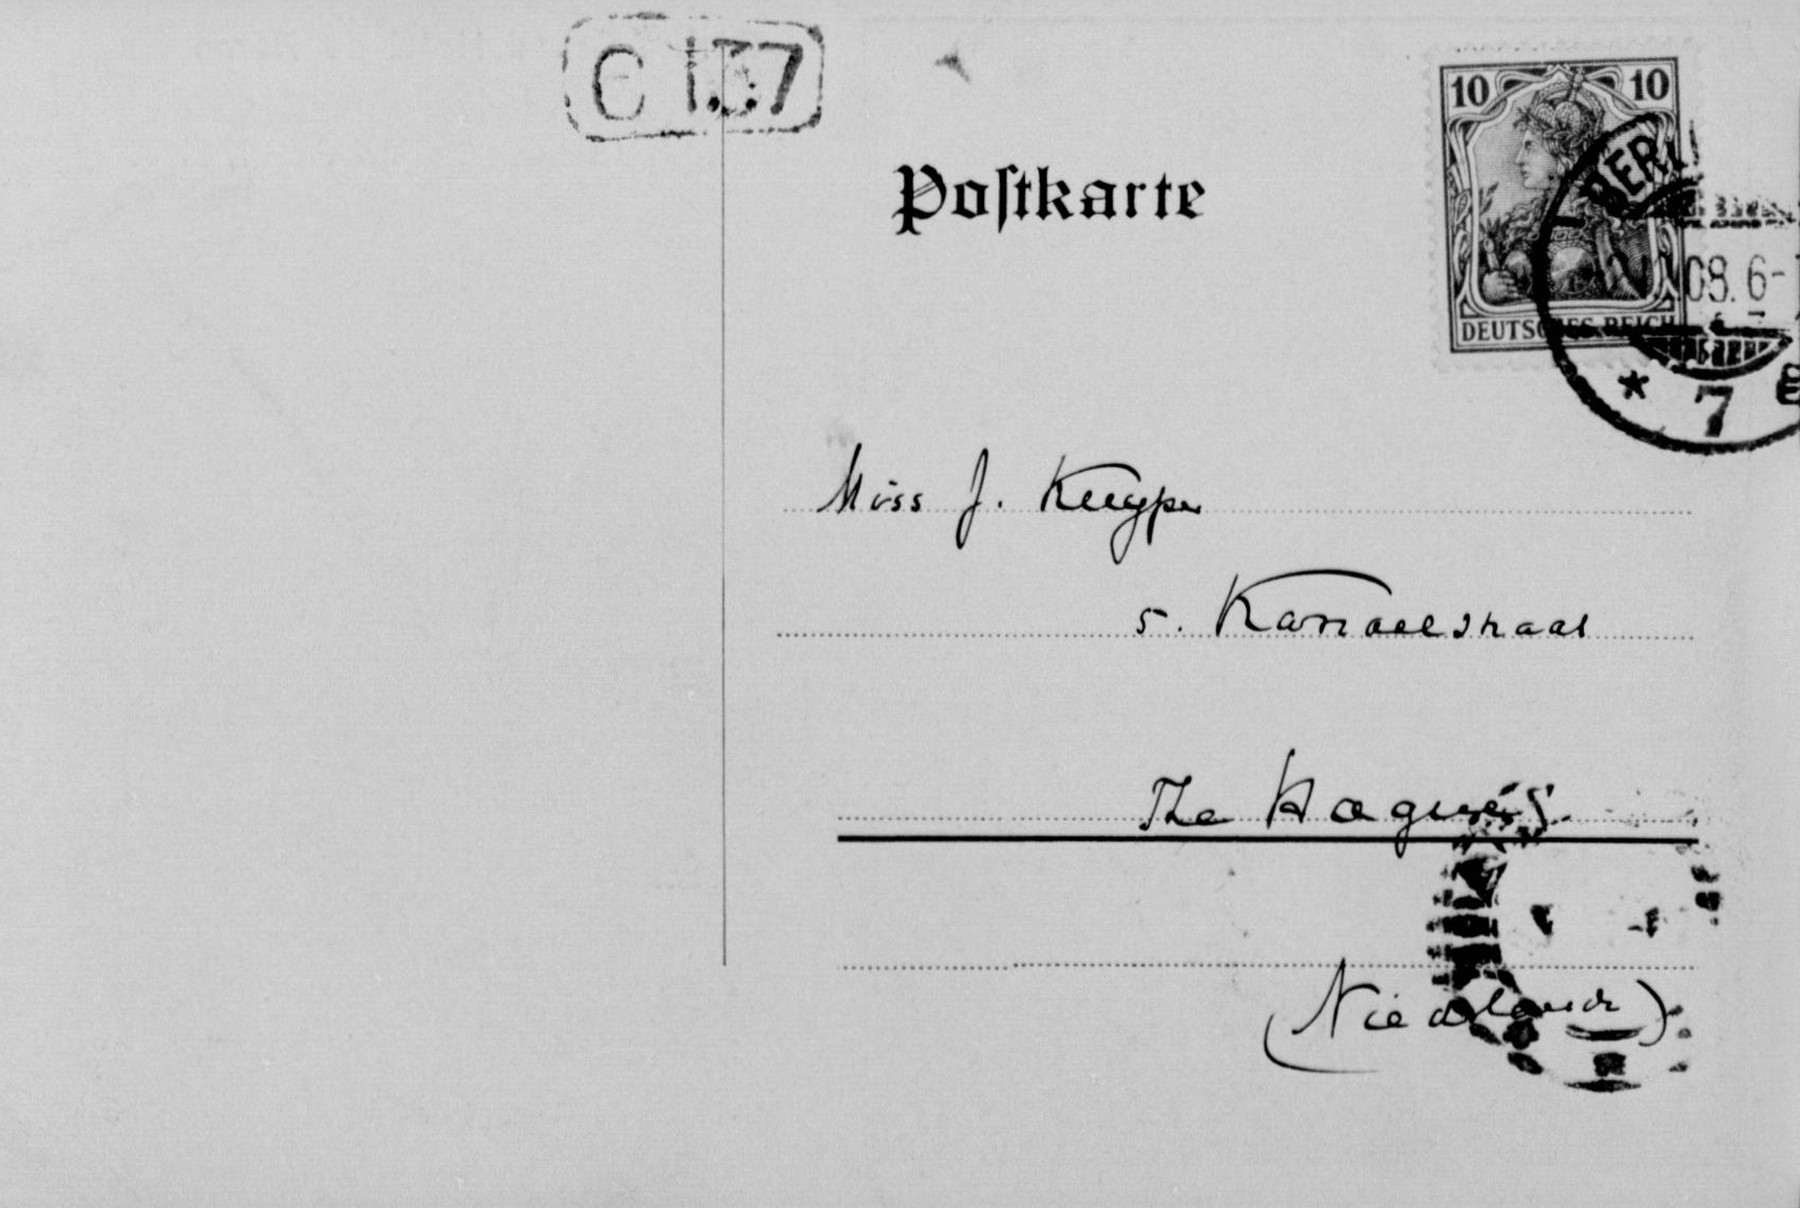 C 137
Postkarte
10 10
DEUTSCHES REICH
BERL
08. 6-
* 7
Miss J. Kuyper
5. Kanaalstraat
The Hague
(Niederlande)